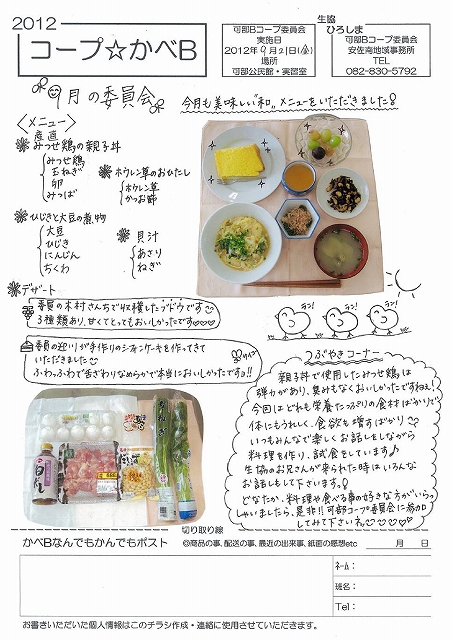 2012
コープ☆かべB
可部Bコープ委員会
実施日
2012年9月21日(金)
場所
可部公民館・実習室
生協
ひろしま
可部Bコープ委員会
安佐南地域事務所
TEL
082-830-5792
9月の委員会
今月も美味しい"和"メニューをいただきました
〈メニュー〉
産直
みつせ鶏の親子丼
みつせ鶏
玉ねぎ
卵
みつば
ホウレン草のおひたし
ホウレン草
かつお節
ひじきと大豆の煮物
大豆
ひじき
にんじん
ちくわ
貝汁
あさり
ねぎ
デザート
委員の木村さんちで収穫したブドウです
3種類あり、甘くてとってもおいしかったです♡♡♡
委員の迎川が手作りのシフォンケーキを作ってきて
いただきました
ふわっふわで舌ざわりなめらかで本当においしかったですョ!!
ラン♪
ラン♪
ラン♪
つぶやきコーナー
親子丼で使用したみつせ鶏は
弾力があり、臭みもなくおいしかったですねぇ!
今回はどれも栄養たっぷりの食材ばかりで
体にもうれしく、食欲も増すばかり
いつもみんなで楽しくお話をしながら
料理を作り、試食をしています♪
生協のお兄さんが来られた時はいろんな
お話もして下さいます。
どなたか、料理や食べる事の好きな方がいらっ
しゃいましたら、是非!!可部コープ委員会に参加
してみて下さいネ
切り取り線
かべBなんでもかんでもポスト
◎商品の事、配送の事、最近の出来事、紙面の感想etc
月 日
ネーム:
班名:
Tel:
お書きいただいた個人情報はこのチラシ作成・連絡に使用させていただきます。